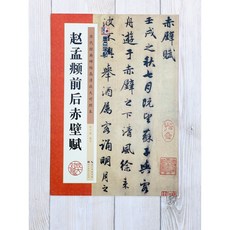 赵孟頫前后赤壁赋
赤壁賦
壬戌之秋七月既望蘇子與客
舟遊于赤壁之下清風徐来
波不興舉酒属客誦明月之